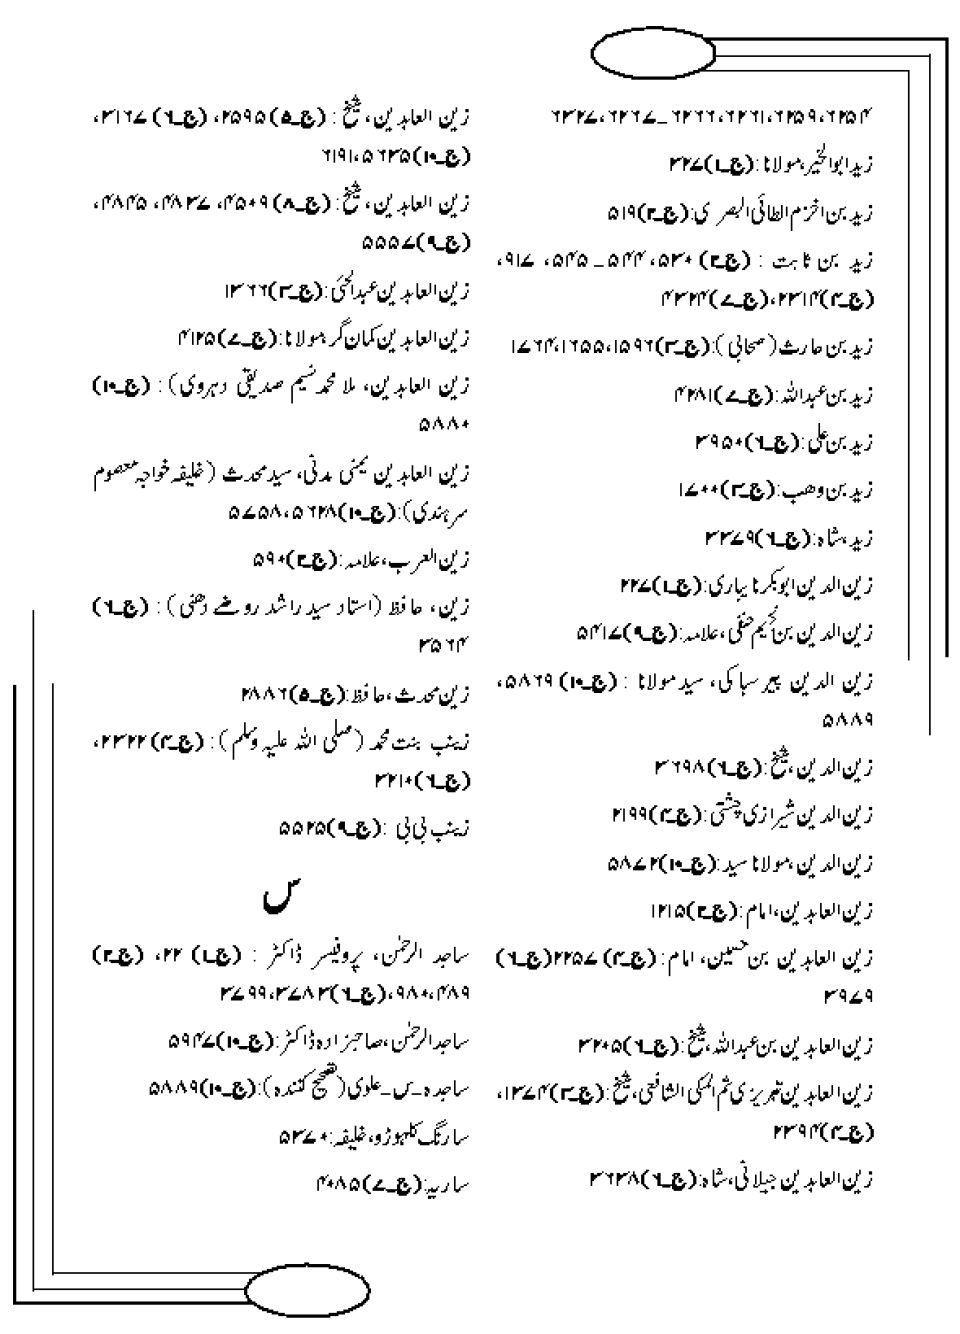 ۶۲۵۴، ۶۲۵۹، ۶۲۶۱، ۶۲۶۶ـ ۶۲۶۷، ۶۳۲۷
زید ابوالخیر، مولانا: (ج۔۱) ۳۲۷
زید بن اخزم الطائی البصری: (ج۔۲) ۵۱۹
زید بن ثابت : (ج۔۲) ۵۳۰، ۵۴۴ ـ ۵۴۵، ۹۱۷،
(ج۔۴) ۲۳۱۴، (ج۔۷) ۴۳۲۴
زید بن حارث (صحابی): (ج۔۳) ۱۵۹۶، ۱۶۵۵، ۱۷۶۴
زید بن عبداللہ: (ج۔۷) ۴۲۸۱
زید بن علی: (ج۔۶) ۳۹۵۰
زید بن وھب: (ج۔۳) ۱۷۰۰
زید، شاہ: (ج۔۶) ۳۳۷۹
زین الدین ابوبکر تایباری: (ج۔۱) ۲۲۷
زین الدین بن نجیم حنفی، علامہ: (ج۔۹) ۵۴۱۷
زین الدین پیر سباکی، سید مولانا : (ج۔۱۰) ۵۸۶۹،
۵۸۸۹
زین الدین، شیخ: (ج۔۶) ۳۶۹۸
زین الدین شیرازی چشتی: (ج۔۴) ۲۱۹۹
زین الدین، مولانا سید: (ج۔۱۰) ۵۸۷۲
زین العابدین، امام: (ج۔۲) ۱۲۱۵
زین العابدین بن حسین، امام: (ج۔۴) ۲۲۵۷ (ج۔۶)
۳۹۷۹
زین العابدین بن عبداللہ، شیخ: (ج۔۶) ۳۲۰۵
زین العابدین تبریزی ثم المکی الشافعی، شیخ: (ج۔۳) ۱۳۷۴،
(ج۔۴) ۲۳۹۴
زین العابدین جیلانی، شاہ: (ج۔۶) ۳۶۳۸
زین العابدین، شیخ: (ج۔۵) ۲۵۹۵، (ج۔۶) ۳۱۶۷،
(ج۔۱۰) ۵۶۳۵، ۶۱۹۱
زین العابدین، شیخ: (ج۔۸) ۴۵۰۹، ۴۸۳۷، ۴۸۴۵،
(ج۔۹) ۵۵۵۷
زین العابدین عبدالحئی: (ج۔۳) ۱۳۶۶
زین العابدین کمان گر، مولانا: (ج۔۷) ۴۱۲۵
زین العابدین، ملا محمد نسیم صدیقی دہروی) : (ج۔۱۰)
۵۸۸۰
زین العابدین یمنی مدنی، سید محدث (خلیفہ خواجہ معصوم
سرہندی): (ج۔۱۰) ۵۶۲۸، ۵۷۵۸
زین العرب، علامہ: (ج۔۲) ۵۹۰
زین، حافظ (استاد سید راشد روضے دھنی) : (ج۔۶)
۳۵۶۴
زین محدث، حافظ: (ج۔۵) ۲۸۸۶
زینب بنت محمد (صلی اللہ علیہ وسلم) : (ج۔۴) ۲۳۲۲،
(ج۔۶) ۳۲۱۰
زینب بی بی : (ج۔۹) ۵۵۲۵
س
ساجد الرحمٰن، پروفیسر ڈاکٹر : (ج۔۱) ۲۲، (ج۔۲)
۴۸۹، ۹۸۰، (ج۔۶) ۳۷۸۲، ۳۷۹۹
ساجد الرحمٰن، صاحبزادہ ڈاکٹر: (ج۔۱۰) ۵۹۴۷
ساجدہ۔س۔علوی (تصحیح کنندہ): (ج۔۱۰) ۵۸۸۹
سارنگ کلہوڑو، خلیفہ: ۵۳۷۰
ساریہ: (ج۔۷) ۴۰۸۵